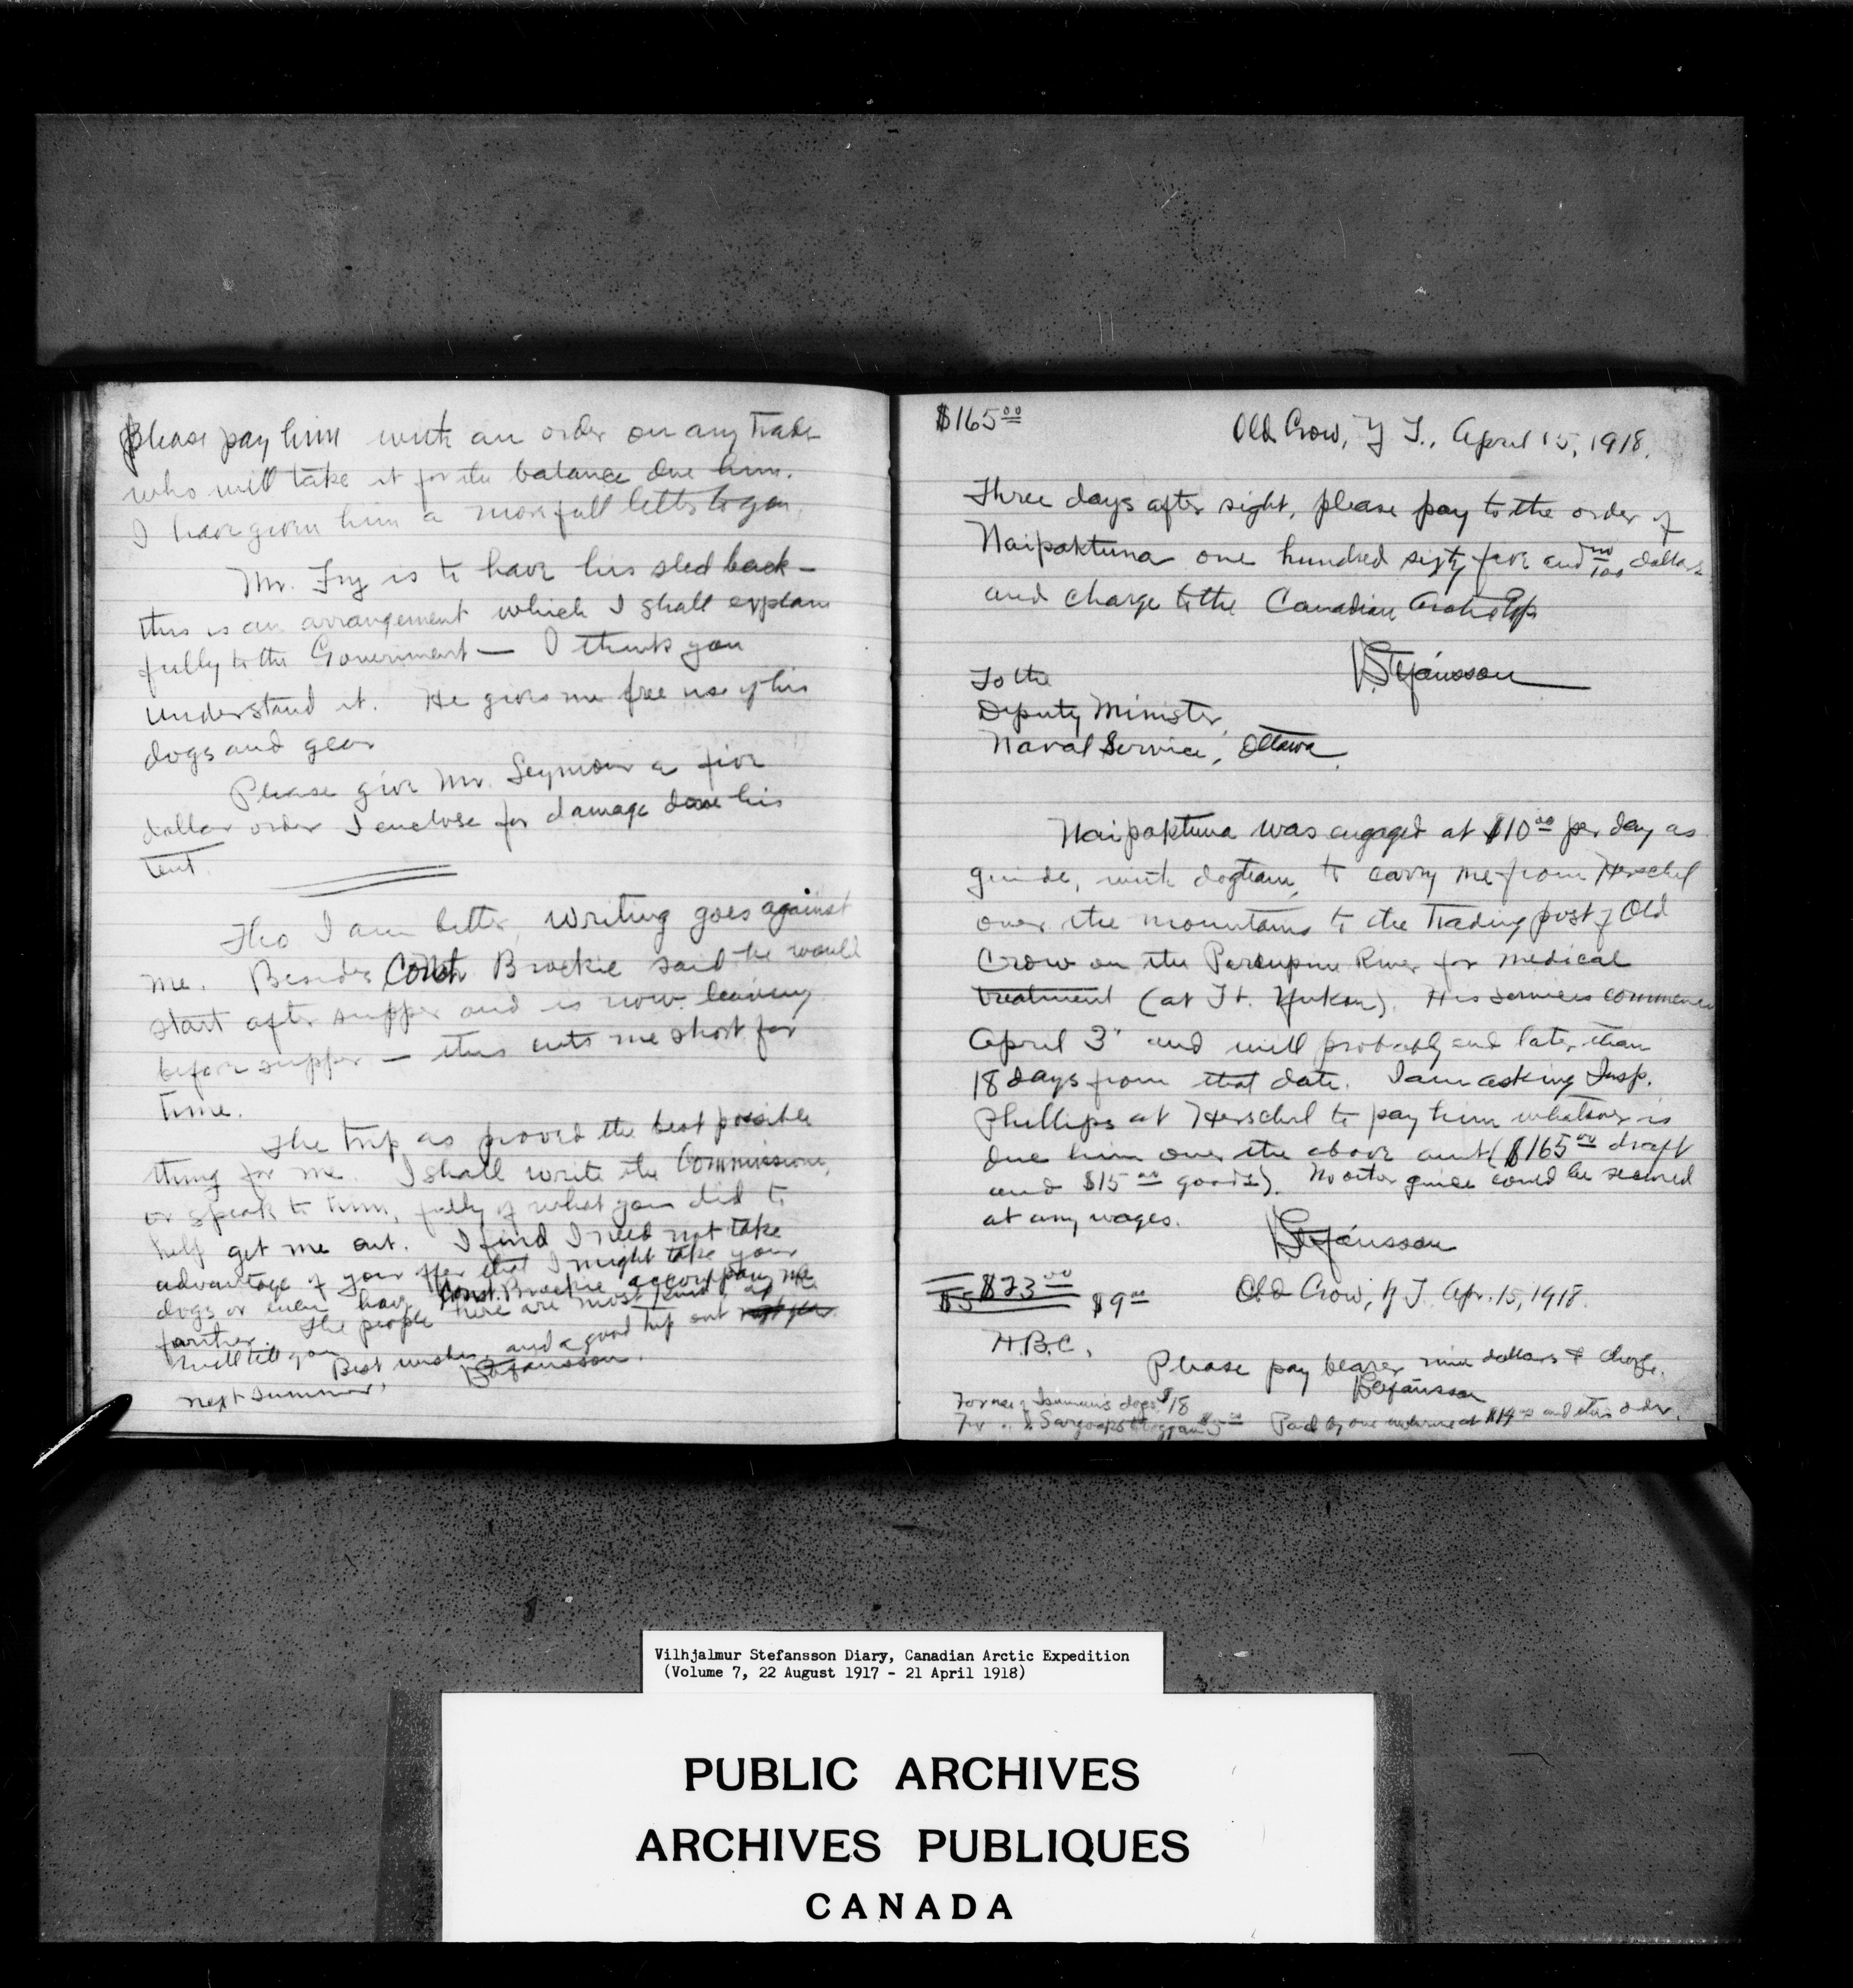 Please pay him with an order on any trader
who will take it for the balance due him.
I have given him a more full letter to you.
Mr. Fry is to have his sled back –
this is an arrangement which I shall explain
fully to the Government — I think you
understand it. He gives me free use of his
dogs and gear
Please give Mr. Seymour a five
dollar order I enclose for damage done his
tent.
Tho I am better, writing goes against
me. Besides Const Brockie said he would
start after supper and is now leaving
before supper — this cuts me short for
time.
The trip as proved the best possible
thing for me. I shall write the Commissioner,
or speak to him, fully of what you did to
help get me out. I find I need not take
advantage of your offer that I might take your
dogs or even have Const. Brockie accompany me
farther. The people here are most kind, as
will tell you
Best wishes, and a good trip out
next summer,
VStefansson.
$165 00
Old Crow, Y T., April 15, 1918.
Three days after sight, please pay to the order of
Naipaktuna one hundred sixty five and no/100 dollars
and charge to the Canadian Arctic Exp
VStefánsson
To the
Deputy Minister,
Naval Service, Ottawa.
Naipaktuna was engaged at $10 00 per day as
guide, with dogteam, to carry me from Herschel
over the mountains to the trading post of Old
Crow on the Porcupine River for medical
treatment (at Ft. Yukon). His services commence
April 3" and will probably end later than
18 days from that date. I am asking Insp.
Phillips at Herschel to pay him whatever is
due him over the above amt ($165 00 draft
and $15 00 goods). No other guide could be secured
at any wages.
VStefánsson
$23 00
$5 $9 00
Old Crow, Y T. Apr. 15, 1918.
H.B.C.
Please pay bearer nine dollars & charge.
VStefánsson
For use of dogs $18
For $5 00 Paid by one at $14 00 and this order.
Vilhjalmur Stefansson Diary, Canadian Arctic Expedition
(Volume 7, 22 August 1917 - 21 April 1918)
PUBLIC ARCHIVES
ARCHIVES PUBLIQUES
CANADA